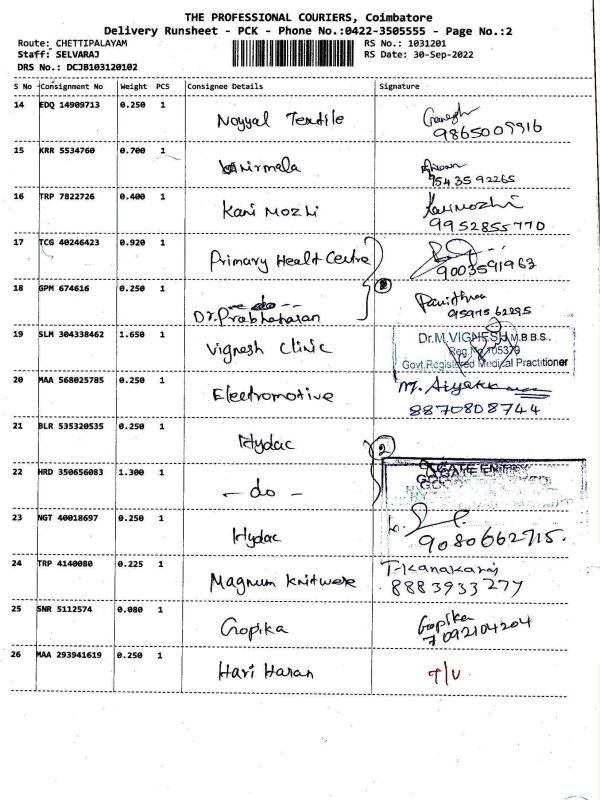 THE PROFESSIONAL COURIERS, Coimbatore
Delivery Runsheet - PCK - Phone No.:0422-3505555 - Page No.:2
Route: CHETTIPALAYAM RS No.: 1031201
Staff: SELVARAJ RS Date: 30-Sep-2022
DRS No.: DCJB103120102
S No Consignment No Weight PCS Consignee Details Signature
14 EDQ 14909713 0.250 1 Noyyal Textile Ganesh
9865009916
15 KRR 5534760 0.700 1 Nirmala
9543592265
16 TRP 7822726 0.400 1 Kani Mozhi Kanimozhi
9952855770
17 TCG 40246423 0.920 1 Primary Healt Centre
9003591963
18 GPM 674616 0.250 1 - do - Pavithraa
Dr. Prabhaharan 9597562295
19 SLM 304338462 1.650 1 Vignesh Clinic Dr.M.VIGNESH M.B.B.S.,
Reg.No.105379
Govt.Registered Medical Practitioner
20 MAA 568025785 0.250 1 Electromotive M.
8870808744
21 BLR 535320535 0.250 1 Hydac 2
22 HRD 350656083 1.300 1 - do - GATE ENTRY
23 NGT 40018697 0.250 1 Hydac
9080662715.
24 TRP 4140080 0.225 1 Magnum Knitwere T-Kanakaraj
8883933277
25 SNR 5112574 0.080 1 Gopika Gopika
7092104204
26 MAA 293941619 0.250 1 Hari Haran T/U